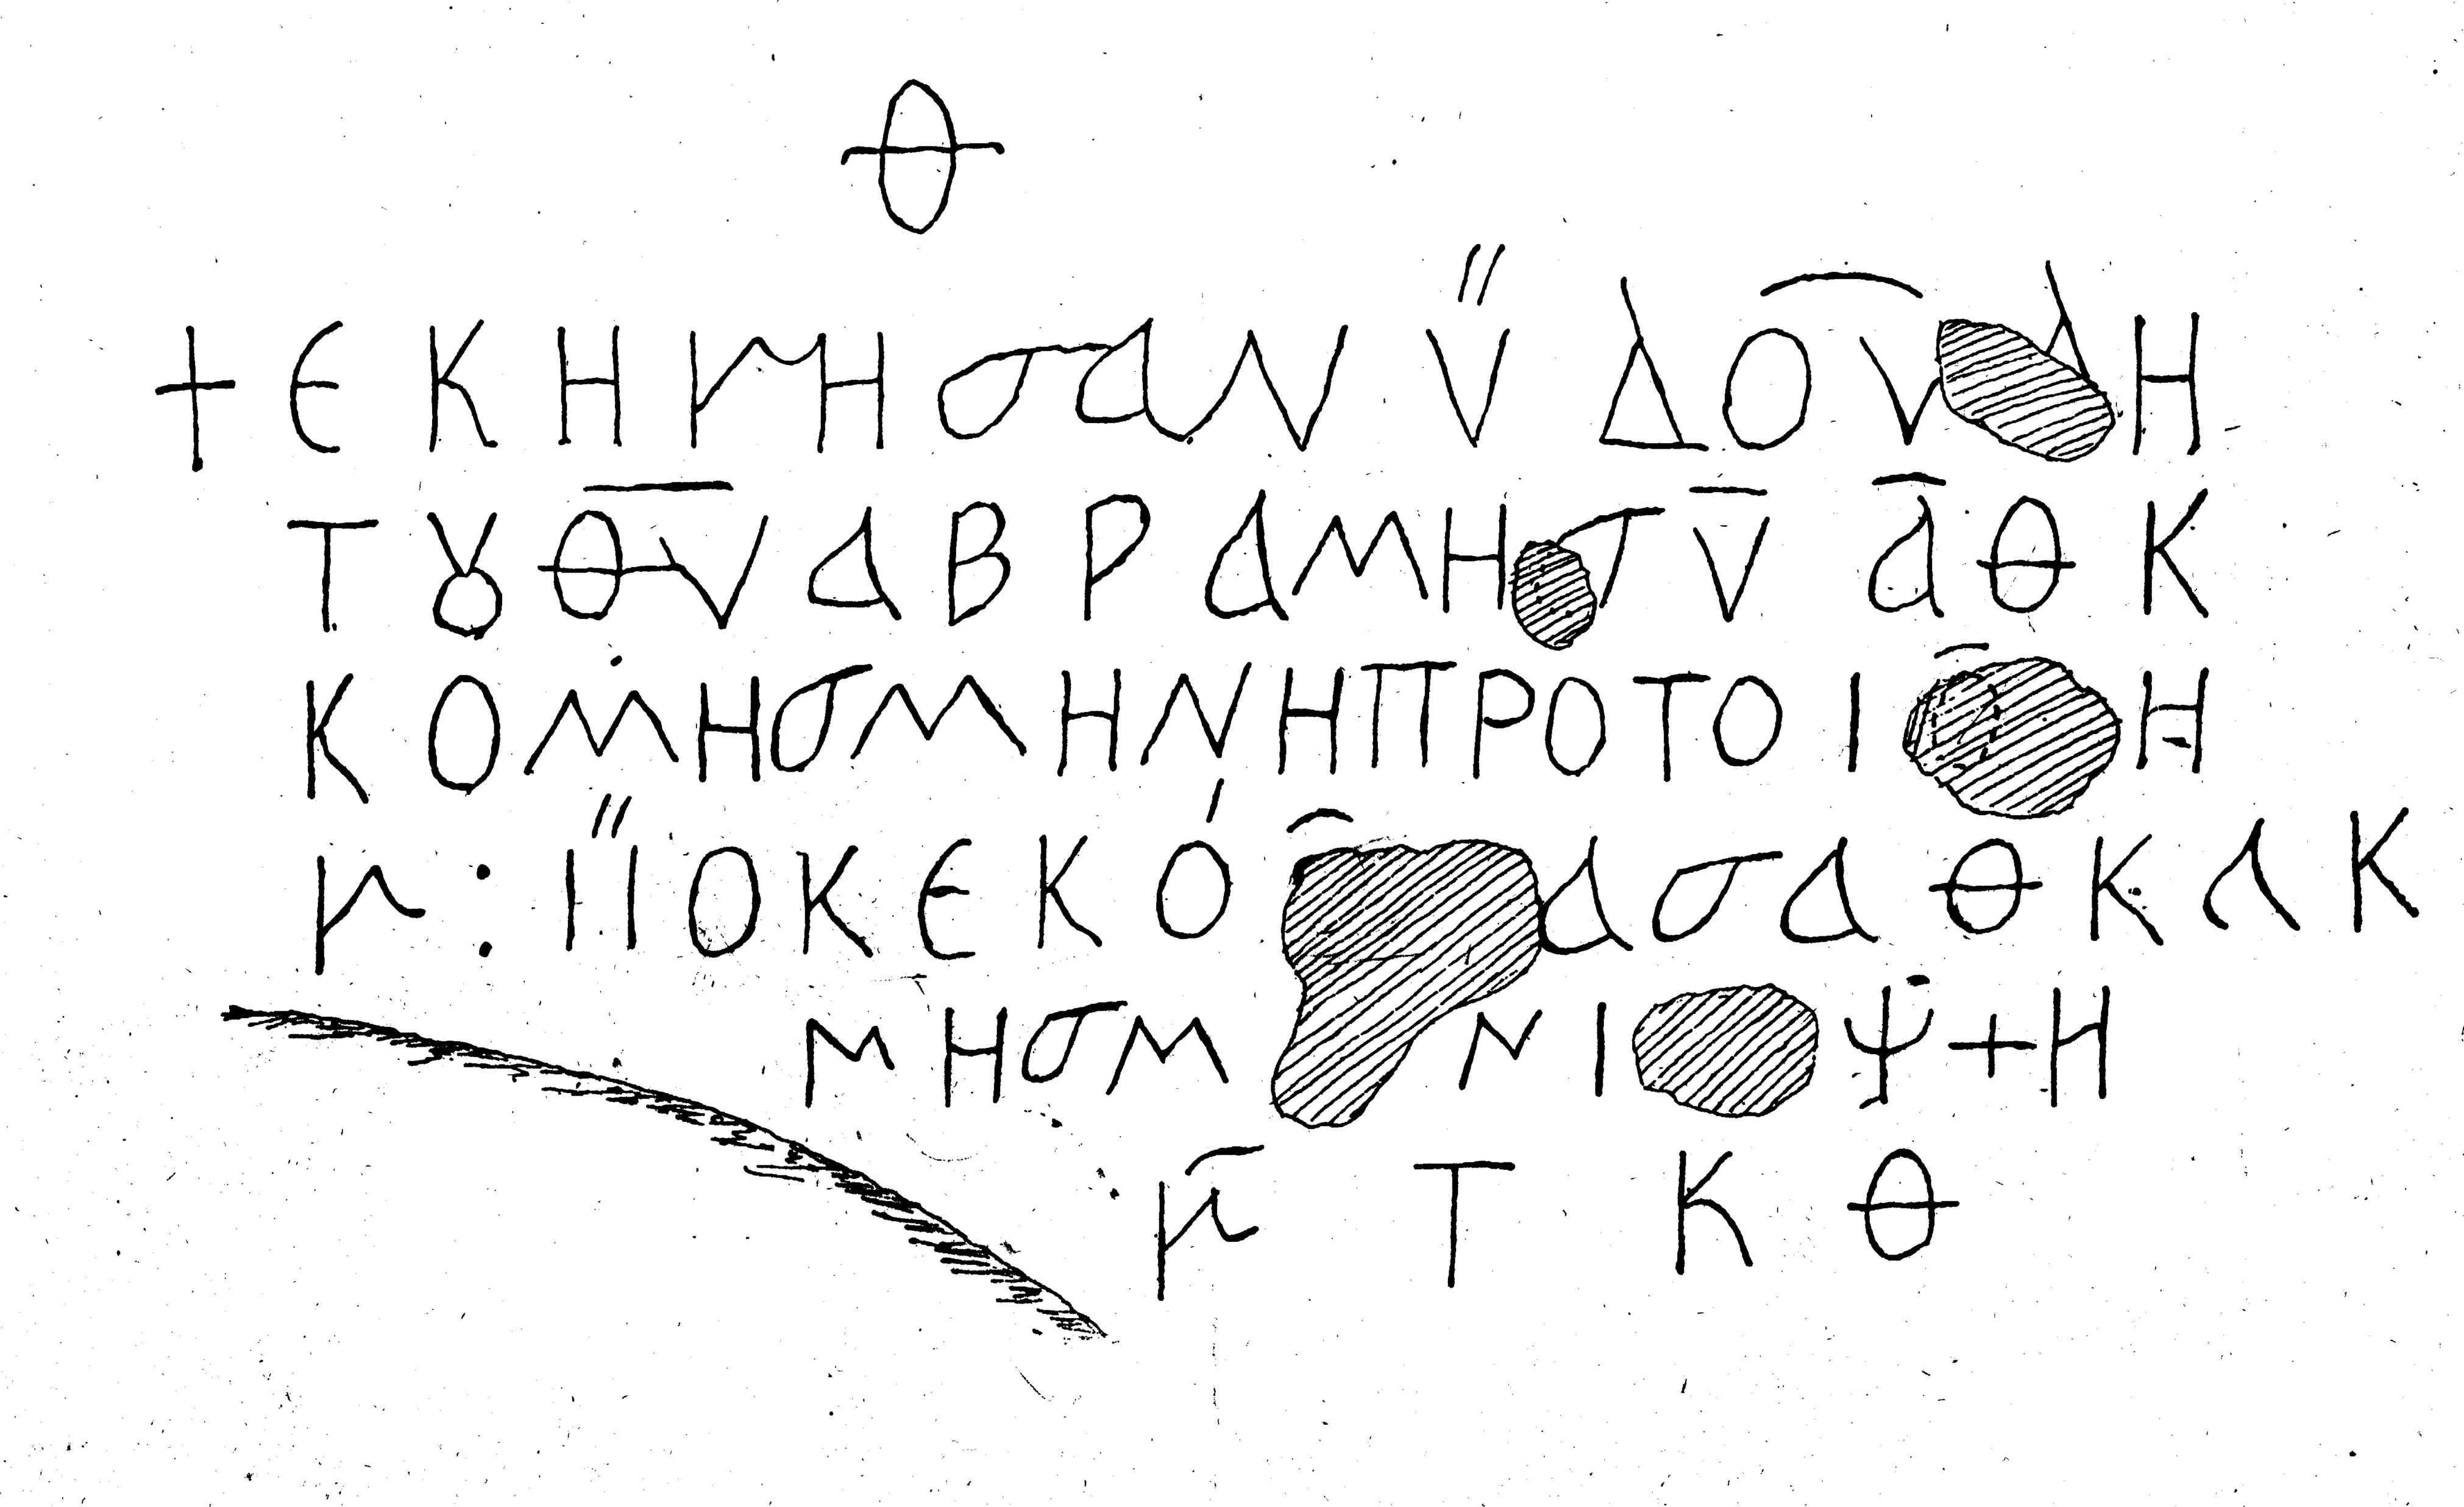 Θ
+ ΕΚΗΜΗΣΑΝ Ϋ ΔΟΥΛΗ
ΤȢ ΘΥ ΑΒΡΑΜΗΣ Υ Α Θ Κ
ΚΟΜΗΣ ΜΗΝΗ ΠΡΟΤΟ Ι Η
Μ : ΙΙ Ο Κ Ε ΚΟ ΑΣΑ Θ Κ Α Κ
ΜΗΣ Μ Ν Ι Ψ + Η
Μ Τ Κ Θ